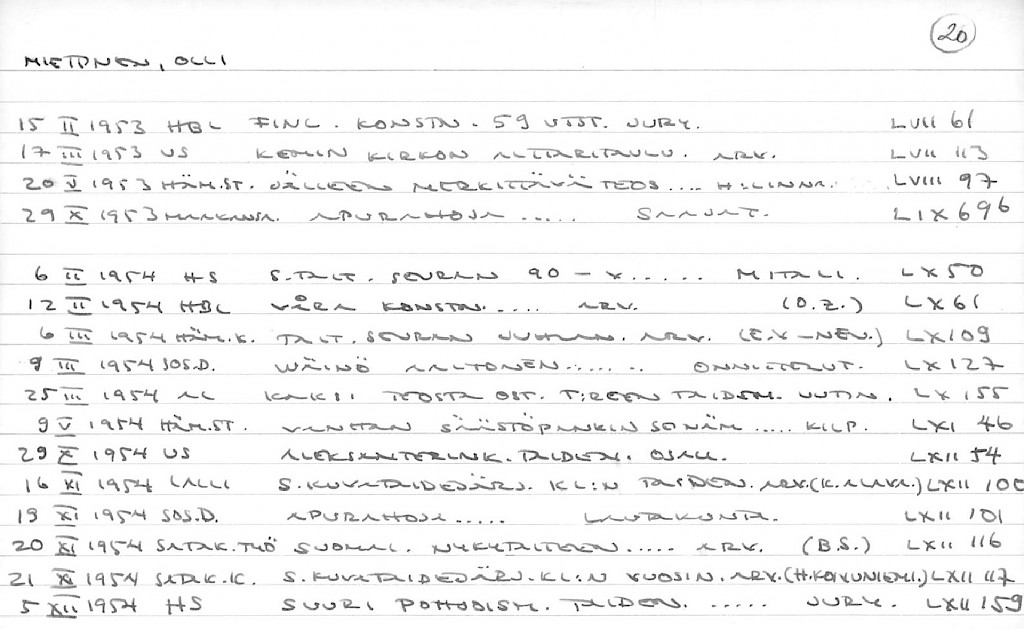 20
MIETTINEN, OLLI
15 II 1953 HBL FINL. KONSTN. 59 UTST. JURY. LVII 61
17 III 1953 US KEMIN KIRKON ALTTARITAULU. ARV. LVII 113
20 V 1953 HÄM.ST. JÄLLEEN MERKITTÄVÄ TEOS .... H:LINNA. LVIII 97
29 X 1953 MAAKANSA. APURAHOJA ..... SAAJAT. LIX 696
6 II 1954 HS S.TAIT. SEURAN 90 – V. ..... MITALI. LX 50
12 II 1954 HBL VÅRA KONSTN. .... ARV. (O.Z.) LX 61
6 III 1954 HÄM.K. TAIT. SEURAN JUHLAN. ARV. (E.V–NEV.) LX 109
9 III 1954 SOS.D. WÄINÖ AALTONEN ...... ONNITTELUT. LX 127
25 III 1954 AL KAKSI TEOSTA OST. T:REEN TAIDEM. UUTIN. LX 155
9 V 1954 HÄM.ST. VANHAN SÄÄSTÖPANKIN SEINÄM ..... KILP. LXI 46
29 X 1954 US ALEKSANTERINK. TAIDEN. OSALL. LXII 54
16 XI 1954 LALLI S. KUVATAIDEJÄRJ. KL:N TAIDEN. ARV. (K. ALAVA.) LXII 100
19 XI 1954 SOS.D. APURAHOJA ..... LAUTAKUNTA. LXII 101
20 XI 1954 SATAK.TYÖ SUOMAL. NYKYTAITEEN ..... ARV. (B.S.) LXII 116
21 XI 1954 SATAK.K. S. KUVATAIDEJÄRJ. KL:N VUOSIN. ARV. (H. KOIVUNIEMI.) LXII 117
5 XII 1954 HS SUURI POHJOISM. TAIDEN. ..... JURY. LXII 159